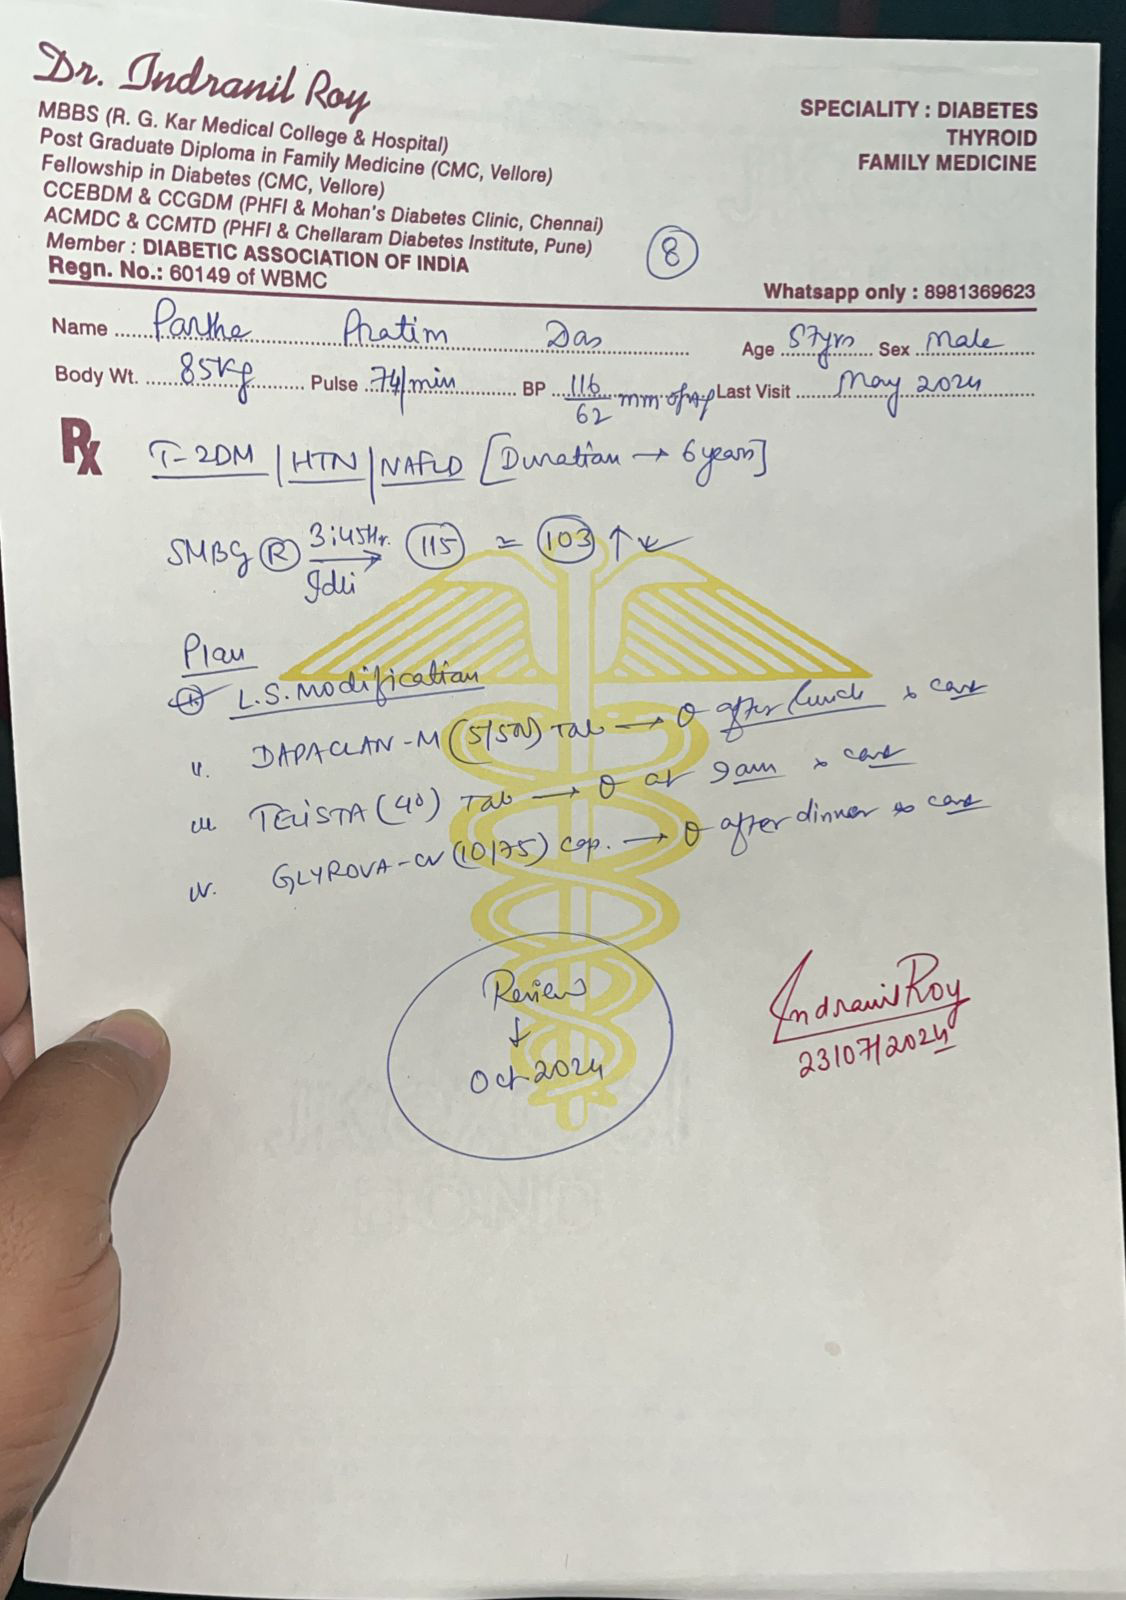 Dr. Indranil Roy
MBBS (R. G. Kar Medical College & Hospital)
Post Graduate Diploma in Family Medicine (CMC, Vellore)
Fellowship in Diabetes (CMC, Vellore)
CCEBDM & CCGDM (PHFI & Mohan's Diabetes Clinic, Chennai)
ACMDC & CCMTD (PHFI & Chellaram Diabetes Institute, Pune)
Member : DIABETIC ASSOCIATION OF INDIA
Regn. No.: 60149 of WBMC
SPECIALITY : DIABETES
THYROID
FAMILY MEDICINE
8
Whatsapp only : 8981369623
Name Partha Pratim Das Age 57yrs Sex Male
Body Wt. 85Kg Pulse 74/min BP 116/62 mm of Hg Last Visit May 2024
Rx T-2DM | HTN | NAFLD [Duration → 6 years]
SMBG R 3:45Hr. Idli → 115 ≃ 103 ↑
Plan
L.S. Modification
ii. DAPACLAN-M (5/500) Tab → after lunch x cont
iii TELISTA (40) Tab → at 9am x cont
iv. GLYROVA-CV (10/75) cap. → after dinner x cont
Review
↓
Oct 2024
Indranil Roy
23/07/2024